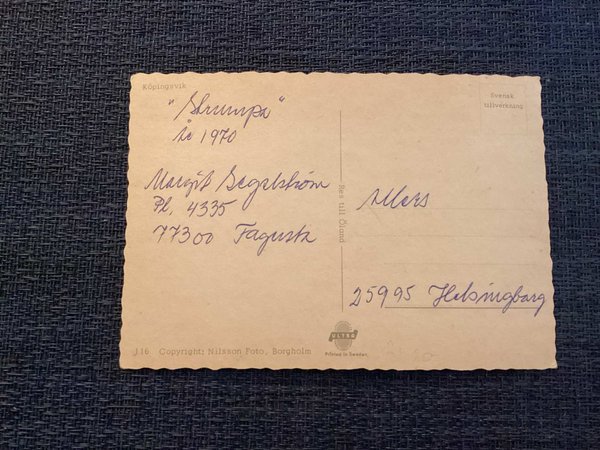 Köpingsvik
"Strumpa"
År 1970
Margit Segelström
Pl. 4335
77300 Fagersta
Res till Öland
Svensk
tillverkning
Allers
25995 Helsingborg
J 16 Copyright; Nilsson Foto, Borgholm
ULTRA
Printed in Sweden